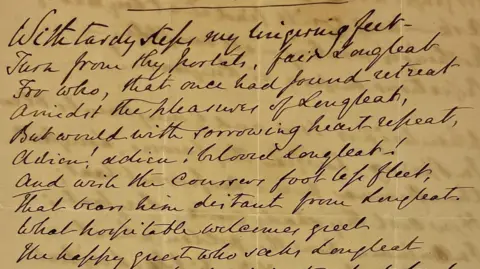 With tardy steps my lingering feet -
Turn from thy portals, fair Longleat
Fro who, that once had found retreat
Amidst the pleasures of Longleat,
But would with sorrowing heart repeat,
Adieu! adieu! beloved Longleat!
And wish the coursers foot less fleet,
That bears him distant from Longleat.
What hospitable welcomes greet
The happy guest who seeks Longleat